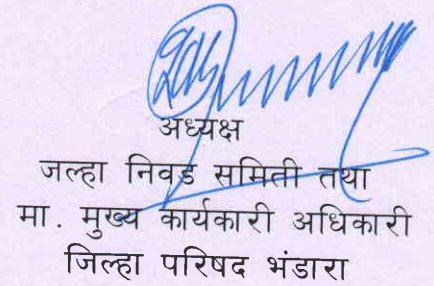 अध्यक्ष
जल्हा निवड समिती तथा
मा. मुख्य कार्यकारी अधिकारी
जिल्हा परिषद भंडारा